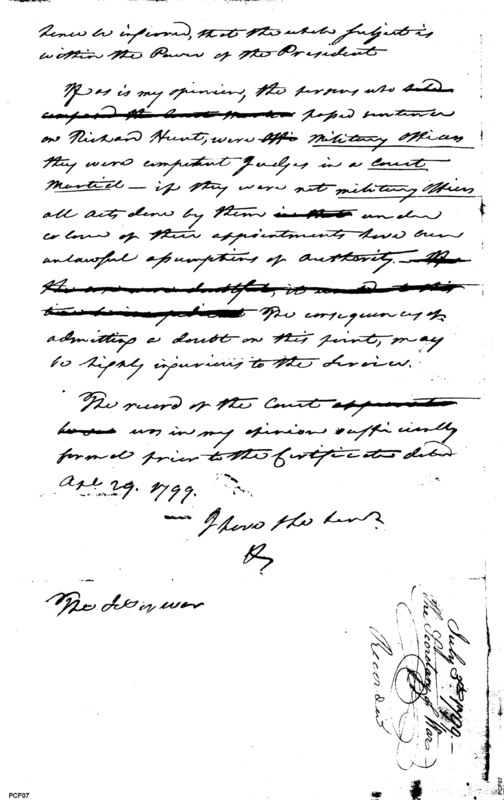 hence be inferred, that the whole subject is
within the Power of the President
If as is my opinion, the persons who
composed the Court Martial passed sentence
on Richard Hunt, were military officers
they were competent Judges in a Court
Martial — if they were not military officers
all acts done by them under
colour of their appointments have been
unlawful assumptions of authority. —
The consequences of
admitting a doubt on this point, may
be highly injurious to the Service.
The record of the Court
was in my opinion sufficiently
formal prior to the Certificate dated
Apl 29. 1799.
I have the hon.
The Secy of War
July 3d 1799. —
The Secretary of War
Recorded
PCF07
PCF07